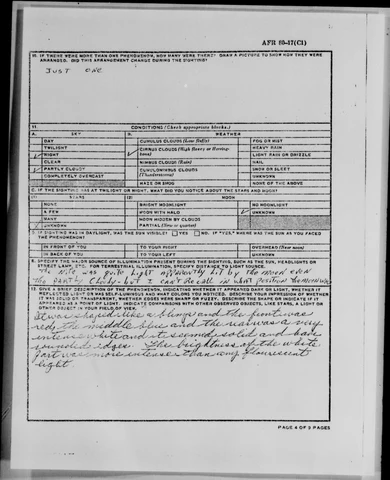 AFR 80-17(C1)
10. IF THERE WERE MORE THAN ONE PHENOMENON, HOW MANY WERE THERE? DRAW A PICTURE TO SHOW HOW THEY WERE
ARRANGED. DID THIS ARRANGEMENT CHANGE DURING THE SIGHTING?
JUST ONE
11. CONDITIONS (Check appropriate blocks.)
A. SKY B. WEATHER
DAY CUMULUS CLOUDS (Low fluffy) FOG OR MIST
TWILIGHT CIRRUS CLOUDS (High fleecy or Herring-bone) HEAVY RAIN
NIGHT LIGHT RAIN OR DRIZZLE
CLEAR NIMBUS CLOUDS (Rain) HAIL
PARTLY CLOUDY CUMULONIMBUS CLOUDS (Thunderstorms) SNOW OR SLEET
COMPLETELY OVERCAST UNKNOWN
HAZE OR SMOG NONE OF THE ABOVE
C. IF THE SIGHTING WAS AT TWILIGHT OR NIGHT, WHAT DID YOU NOTICE ABOUT THE STARS AND MOON?
(1) STARS (2) MOON
NONE BRIGHT MOONLIGHT NO MOONLIGHT
A FEW MOON WITH HALO UNKNOWN
MANY MOON HIDDEN BY CLOUDS
UNKNOWN PARTIAL (New or quarter)
IF SIGHTING WAS IN DAYLIGHT, WAS THE SUN VISIBLE? YES NO IF "YES," WHERE WAS THE SUN AS YOU FACED
THE PHENOMENON?
IN FRONT OF YOU TO YOUR RIGHT OVERHEAD (Near noon)
IN BACK OF YOU TO YOUR LEFT UNKNOWN
SPECIFY THE MAJOR SOURCE OF ILLUMINATION PRESENT DURING THE SIGHTING, SUCH AS THE SUN, HEADLIGHTS OR
STREET LAMP, ETC. FOR TERRESTRIAL ILLUMINATION, SPECIFY DISTANCE TO LIGHT SOURCE.
The nite was quite light apparently lit by the moon even
the partly cloudy but I can't recall in what position the moon was
12. GIVE A BRIEF DESCRIPTION OF THE PHENOMENON, INDICATING WHETHER IT APPEARED DARK OR LIGHT, WHETHER IT
REFLECTED LIGHT OR WAS SELF-LUMINOUS AND WHAT COLORS YOU NOTICED. DESCRIBE YOUR IMPRESSION OF WHETHER
IT WAS SOLID OR TRANSPARENT, WHETHER EDGES WERE SHARP OR FUZZY. DESCRIBE THE SHAPE OR INDICATE IF IT
APPEARED AS A POINT OF LIGHT. INDICATE COMPARISONS WITH OTHER OBSERVED OBJECTS, LIKE STARS, A LIGHT OR
OTHER OBJECT IN YOUR FIELD OF VIEW.
It was shaped like a blimp and the front was
red, the middle blue and the rear was a very
intense white and it seemed solid and have
rounded edges. The brightness of the white
part was more intense than any flourescent
light
PAGE 4 OF 5 PAGES